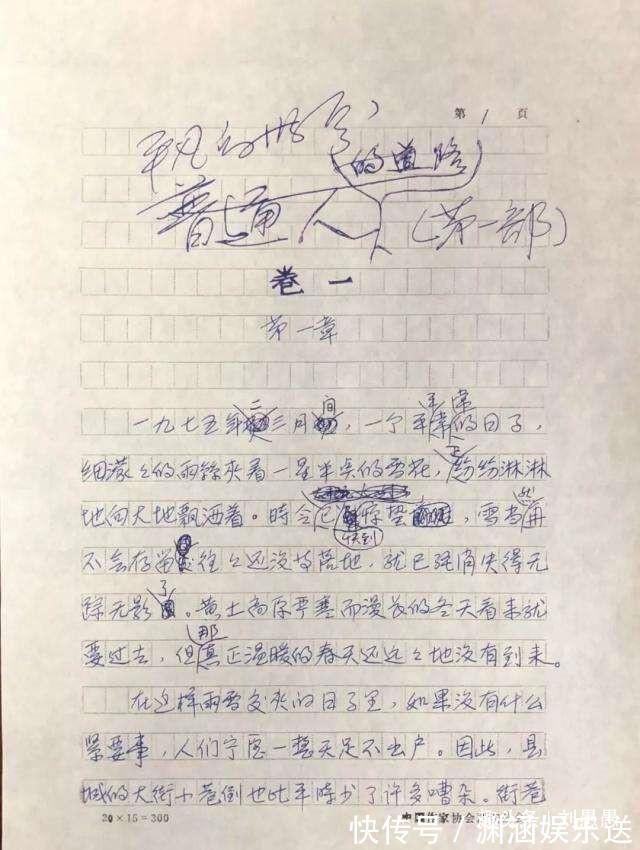 第 1 页
平凡的世界
(的道路)
普通人
(第一部)
卷一
第一章
一九七五年二三月间，一个平常的日子，
细濛々的雨丝夹着一星半点的雪花，正纷纷淋淋
地向大地飘洒着。时令已快到惊蛰，雪当然再
不会存留，往々还没等落地，就已经消失得无
踪无影了。黄土高原严寒而漫长的冬天看来就
要过去，但那真正温暖的春天还远々地没有到来。
在这样雨雪交夹的日子里，如果没有什么
紧要事，人们宁愿一整天足不出户。因此，县
城的大街小巷倒也比平时少了许多嘈杂。街巷
20×15=300
中国作家协会
刘思愚
快传号/渊涵娱乐送